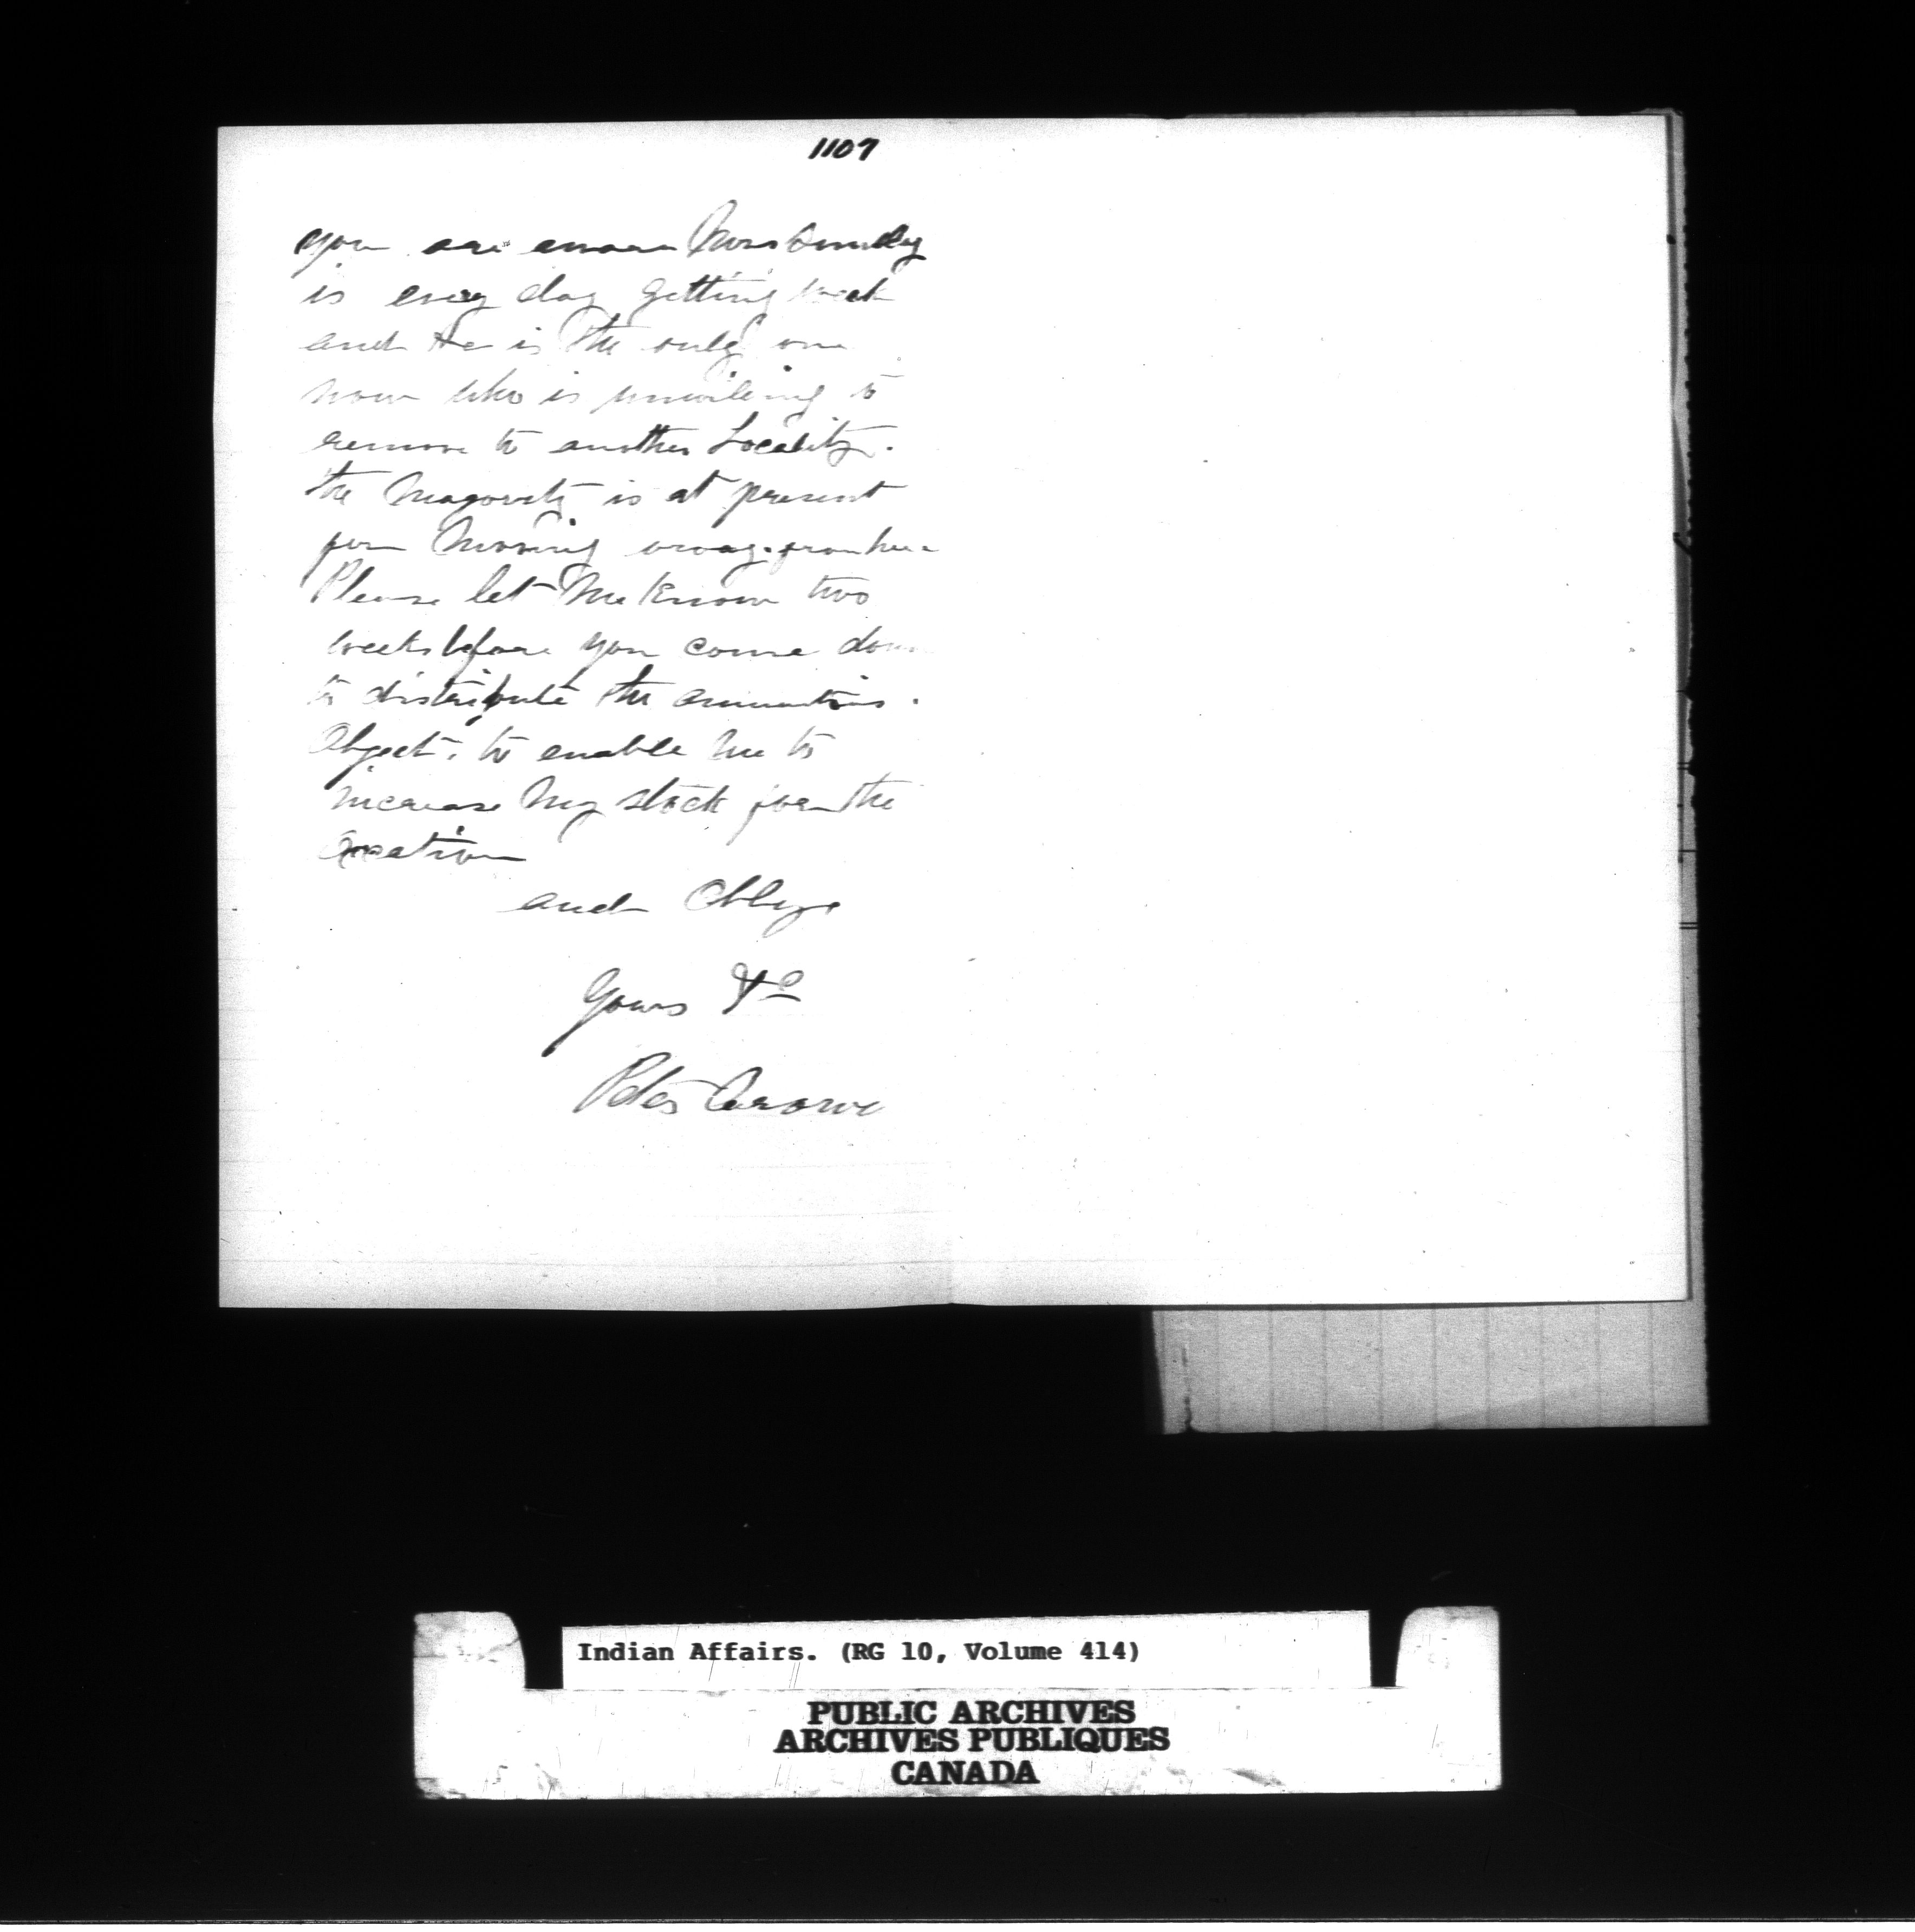 1107
you are
is every day getting weak
and He is the only one
now who is unwilling to
remove to another Locality.
the Magority is at present
for Moving away from here
Please let Me Know two
weeks before you come down
to distribute the annuities.
Object, to enable me to
increase My stock for the
Ocation
and Oblige
Yours &c
Peter
Indian Affairs. (RG 10, Volume 414)
PUBLIC ARCHIVES
ARCHIVES PUBLIQUES
CANADA